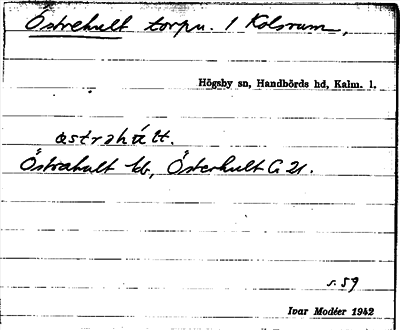 Östrehult torpn. 1 Kolsrum,
Högsby sn, Handbörds hd, Kalm. l.
östrahùlt.
Östrahult kb, Österhult G 21.
s. 59
Ivar Modéer 1942